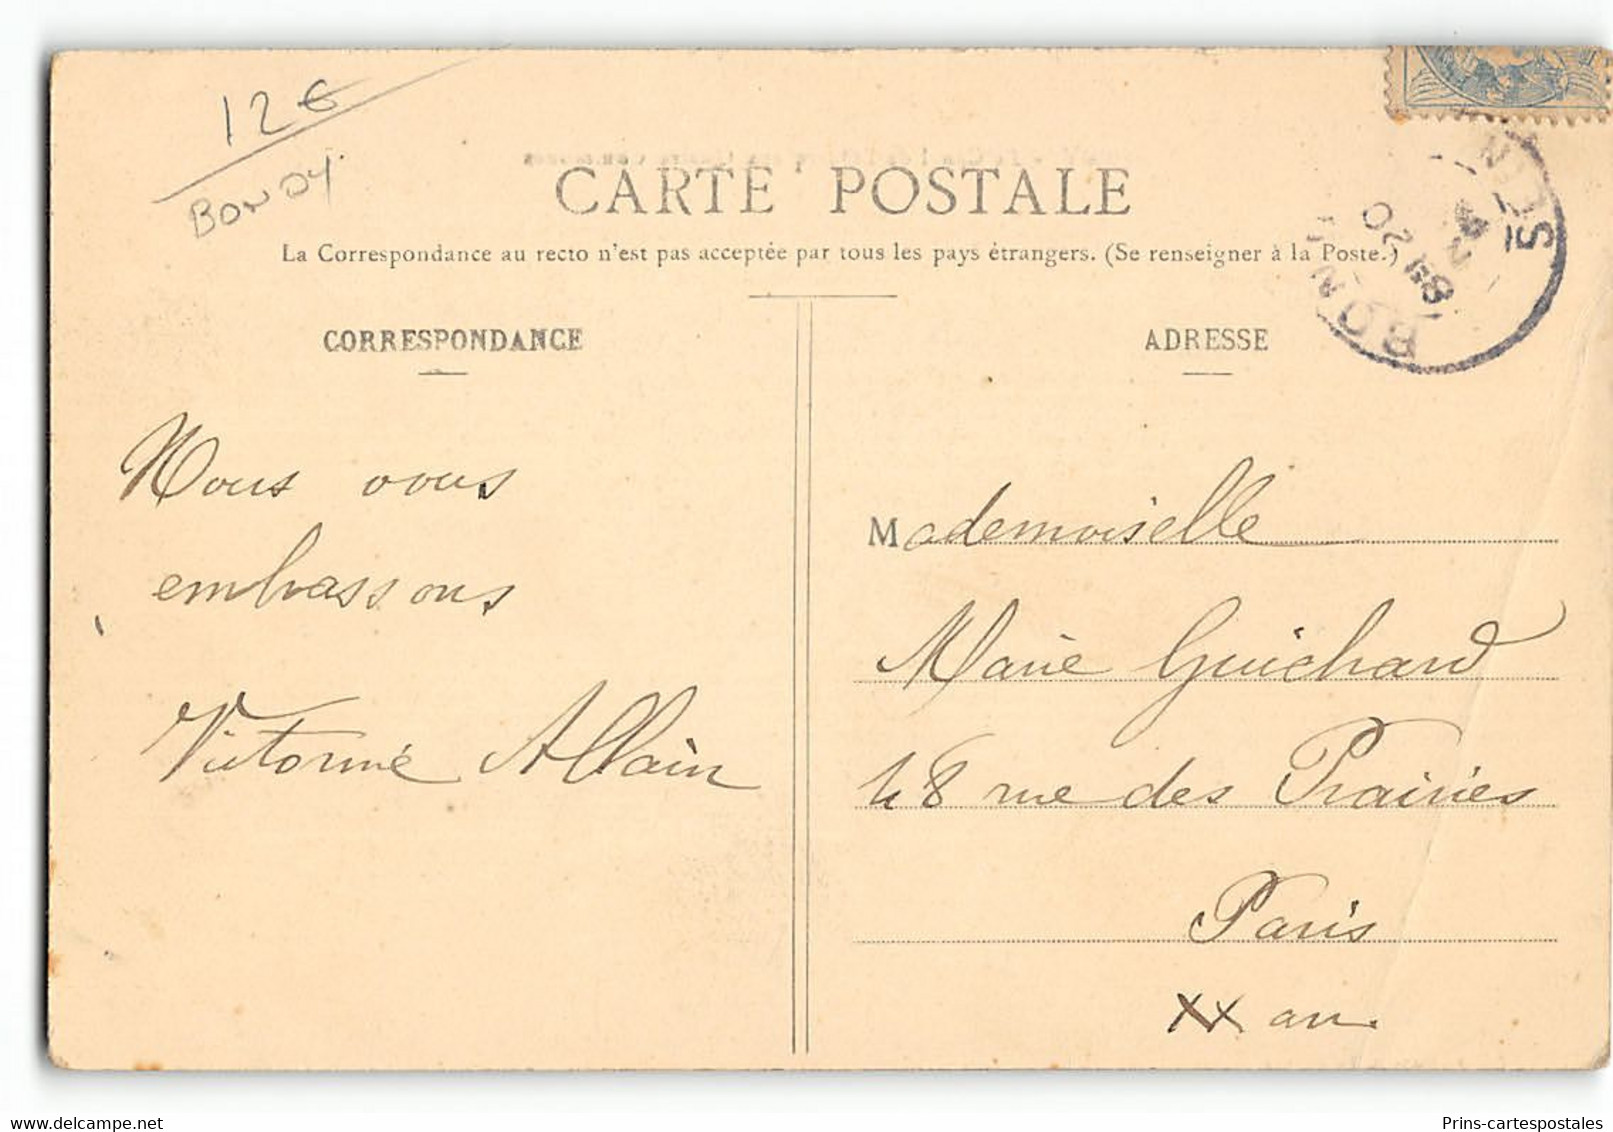 12€
BONDY
CARTE POSTALE
La Correspondance au recto n'est pas acceptée par tous les pays étrangers. (Se renseigner à la Poste.)
CORRESPONDANCE
ADRESSE
Nous vous
embrassons
Victorine Allain
Mademoiselle
Marie Guichard
48 rue des Prairies
Paris
XX arr.
BOND
Prins-cartespostales